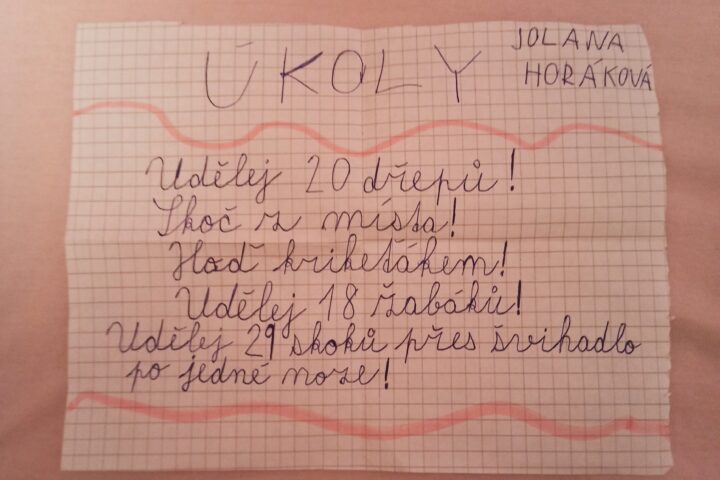 ÚKOLY
JOLANA
HORÁKOVÁ
Udělej 20 dřepů!
Skoč z místa!
Hoď kriketákem!
Udělej 18 žabáků!
Udělej 29 skoků přes švihadlo
po jedné noze!